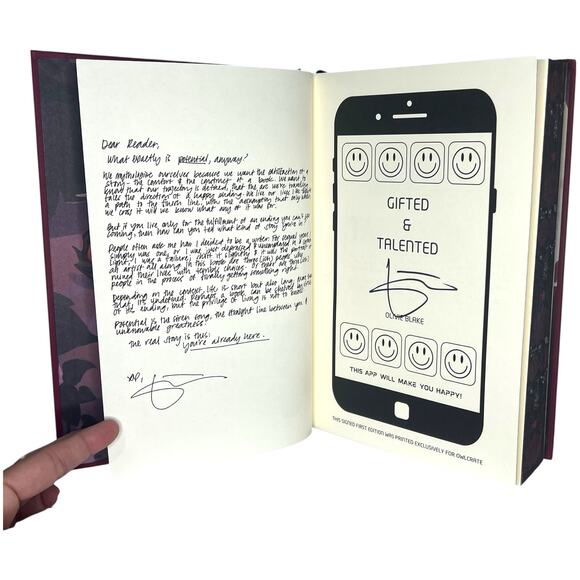 Dear Reader,
What exactly is potential, anyway?
We mythologize ourselves because we want the satisfaction of a
story— the comfort of the construct of a book. We want to
know that our trajectory is defined, that the arc we're traveling
takes the direction of a happy ending. We live our lives like there's
a path to the finish line, with the assumption that only when
we cross it will we know what any of it was for.
But if you live only for the fulfillment of an ending you can't see
coming, then how can you tell what kind of story you're in?
People often ask me how I decided to be a writer. For several years I
simply was one, or I was just depressed & unemployed. In a certain
light, I was a failure; shift it slightly & it was the portrait of
an artist all along. In this book are three (ish) people who
ruined their lives with terrible choices. Or there are three (ish)
people in the process of finally getting something right.
Depending on the context. Life is short but also long,
it's undefined. Perhaps a book can be shelved by
of its ending, but the privilege of living is not to know.
Potential is the siren song, the straight line between you &
unknowable greatness.
The real story is this:
you're already here.
xo,
GIFTED
&
TALENTED
OLIVIE BLAKE
THIS APP WILL MAKE YOU HAPPY!
THIS SIGNED FIRST EDITION WAS PRINTED EXCLUSIVELY FOR OWLCRATE